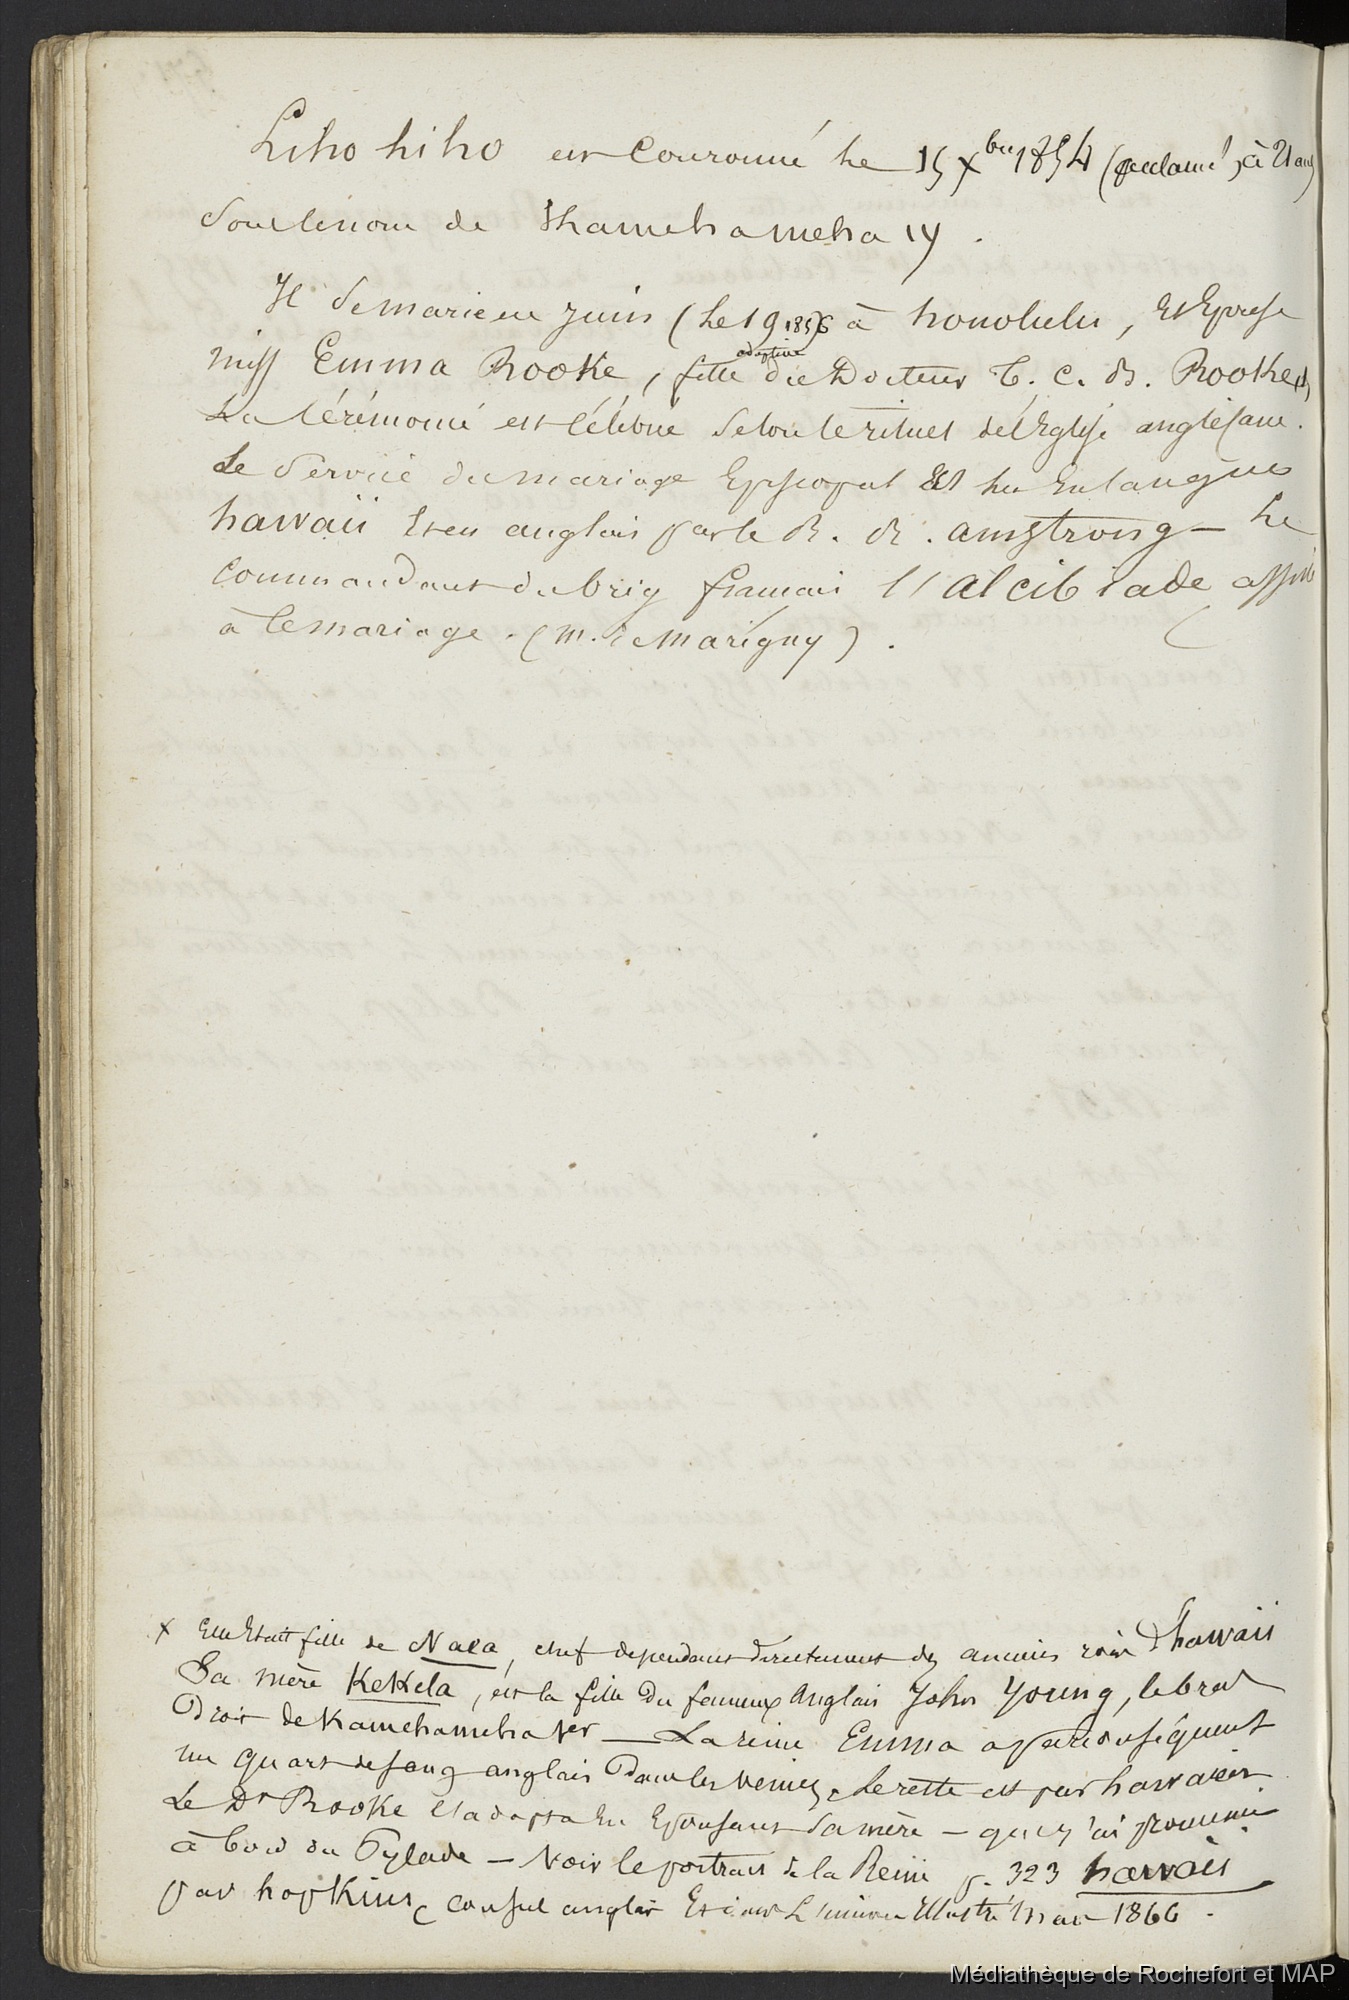 Liho hiho est Couronné le 15 Xbre 1854 (proclamé, à 21 ans)
sous le nom de Kamehameha IV.
Il se marie en juin (le 19 1856) à honolulu, Et Epouse
miss Emma Rooke, fille adoptive du Docteur T. C. B. Rooke (x)
La Cérémonie est Célébrée selon le rituel de l'Eglise anglicane.
Le service du mariage Episcopal Est lu En langues
hawaii Et en anglais par le R. R. amstrong — Le
Commandant du brig francais l'alcibiade assiste
à ce mariage. (m. de marigny).
x Elle Etait fille de Naea, chef dependant directement des anciens rois d'hawaii
Sa mère Kekela, est la fille du fameux Anglais John Young, le bras
Droit de Kamehameha 1er — La reine Emma a par conséquent
un quart de sang anglais dans les veines. Le reste est pur hawaien.
Le Dr Rooke l'adopta En Epousant sa mère — que j'ai promenée
à bord du Pylade — Voir le portrait de la Reine p. 323 hawaii
par hopkins, consul anglais Et dans L'univers Illustré 1866.